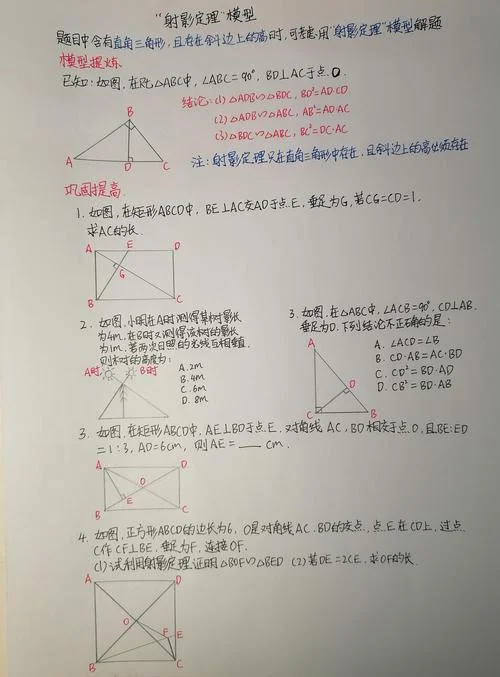 "射影定理"模型
题目中含有直角三角形,且存在斜边上的高时,可考虑用"射影定理"模型解题
模型提炼
已知:如图,在Rt△ABC中,∠ABC=90°,BD⊥AC于点D.
结论:(1)△ADB∽△BDC, BD²=AD·CD
(2)△ADB∽△ABC, AB²=AD·AC
(3)△BDC∽△ABC, BC²=DC·AC
注:射影定理只在直角三角形中存在,且斜边上的高必须存在
B
A D C
巩固提高
1. 如图,在矩形ABCD中,BE⊥AC交AD于点E,垂足为G,若CG=CD=1.
求AC的长.
A E D
G
B C
2. 如图,小明在A时测得某树的影长
为4m,在B时又测得该树的影长
为1m,若两次日照的光线互相垂直.
则树的高度为:
A时 B时
A. 2m
B. 4m
C. 6m
D. 8m
3. 如图,在△ABC中,∠ACB=90°,CD⊥AB.
垂足为D.下列结论不正确的是:
A. ∠ACD=∠B
B. CD·AB=AC·BD
C. CD²=BD·AD
D. CB²=BD·AB
A
D
C B
3. 如图,在矩形ABCD中,AE⊥BD于点E,对角线AC,BD相交于点O,且BE:ED
=1:3, AD=6cm, 则AE=____cm.
A D
O
E
B C
4. 如图,正方形ABCD的边长为6,O是对角线AC、BD的交点,点E在CD上,过点
C作CF⊥BE,垂足为F,连接OF.
(1)试利用射影定理证明△BOF∽△BED (2)若DE=2CE,求OF的长.
A D
O
F E
B C